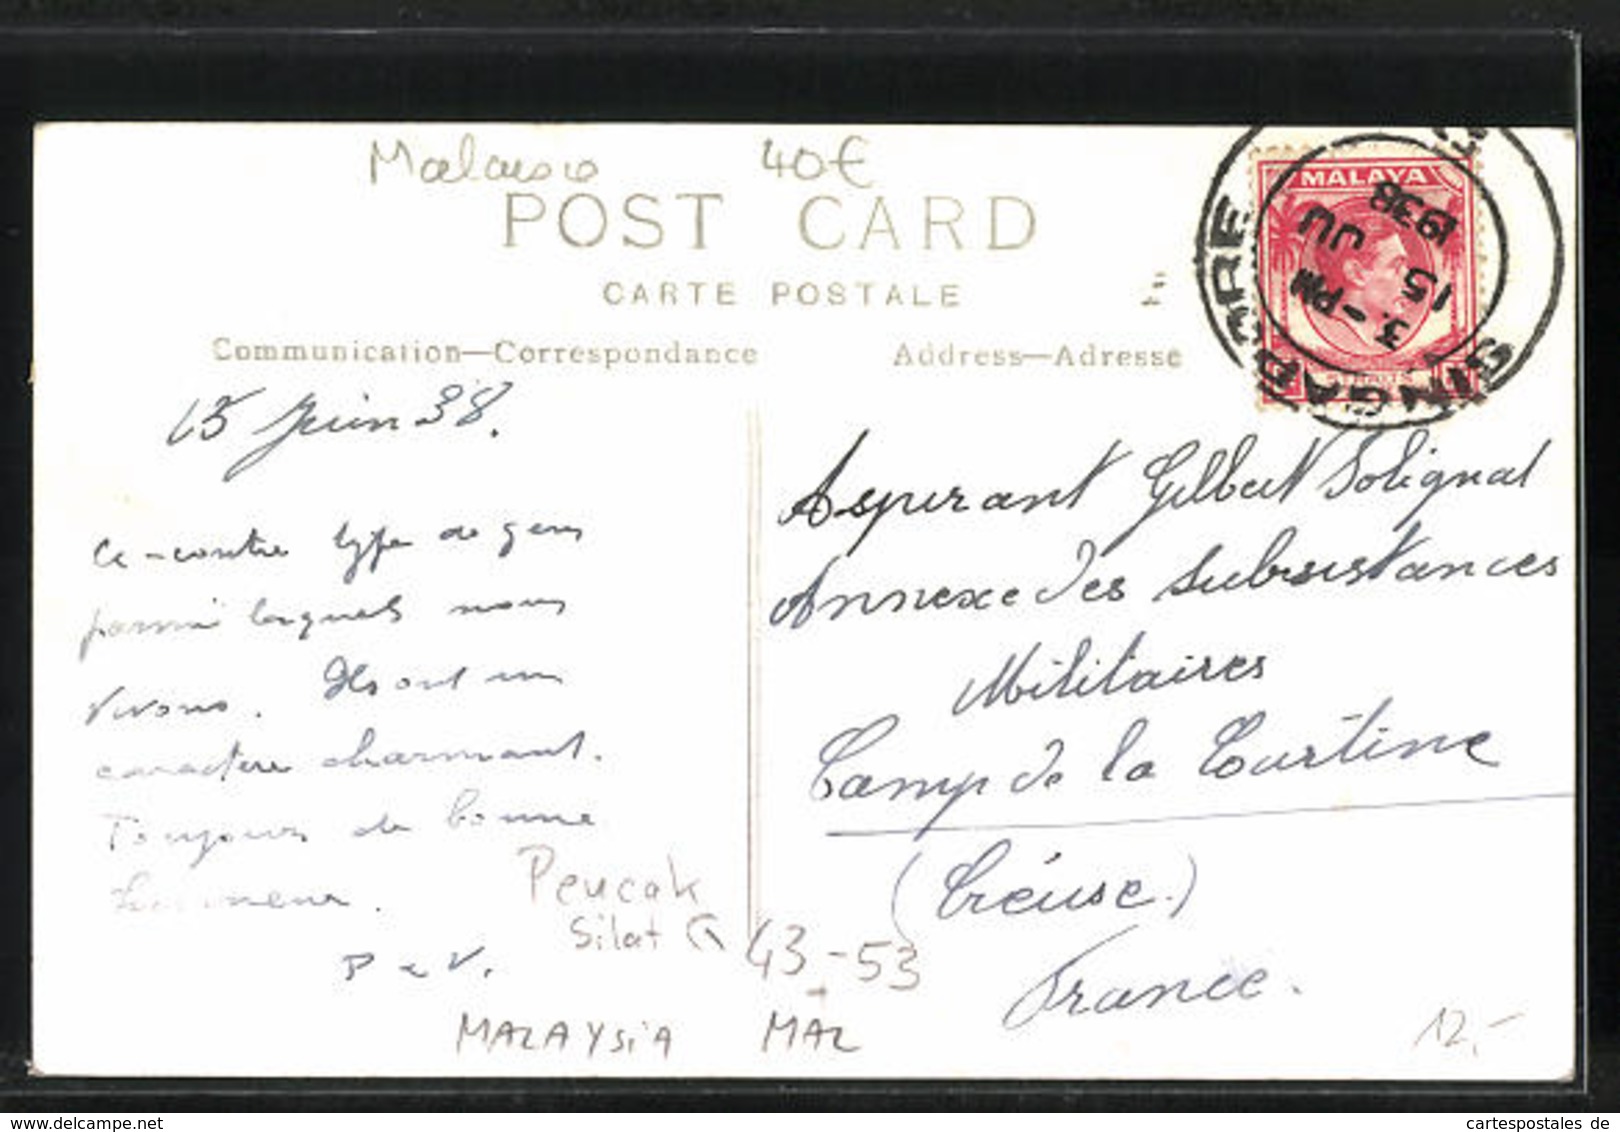 Malaisie 40€
POST CARD
CARTE POSTALE
Communication—Correspondance
Address—Adresse
MALAYA
SINGAPORE
3-PM
15 JU
1938
15 Juin 38.
Ci-contre type de gens
parmi lesquels nous
vivons. Ils ont un
caractère charmant.
Toujours de bonne
humeur.
P & V.
Aspirant Gilbert Solignat
Annexe des Subsistances
Militaires
Camp de la Courtine
(Creuse.)
France.
Pencak
Silat
43-53
MALAYSiA MAL
12,-
cartespostales de